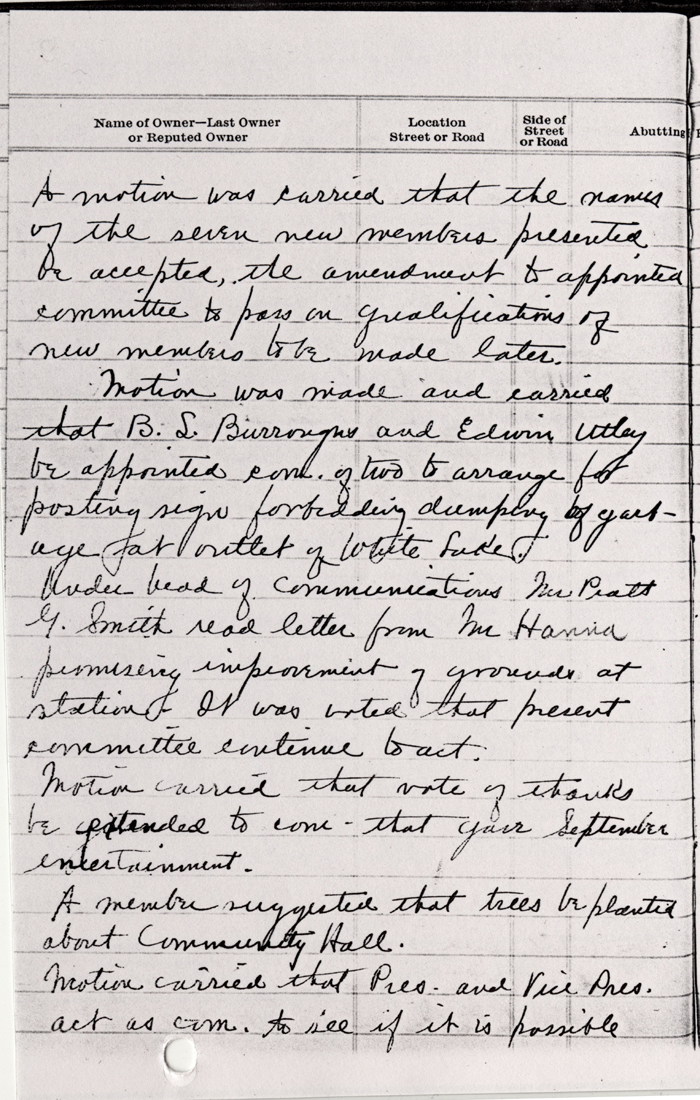 Name of Owner—Last Owner
or Reputed Owner
Location
Street or Road
Side of
Street
or Road
Abutting
A motion was carried that the names
of the seven new members presented
be accepted, the amendment to appointed
committee to pass on qualifications of
new members to be made later.
Motion was made and carried
that B. L. Burroughs and Edwin Utley
be appointed com. of two to arrange for
posting sign forbidding dumping of garb-
age at outlet of White Lake.
Under head of communications Mr Pratt
G. Smith read letter from Mr Hanna
promising improvement of grounds at
station. It was voted that present
committee continue to act.
Motion carried that vote of thanks
be extended to com - that gave September
entertainment.
A member suggested that trees be planted
about Community Hall.
Motion carried that Pres. and Vice Pres.
act as com. to see if it is possible